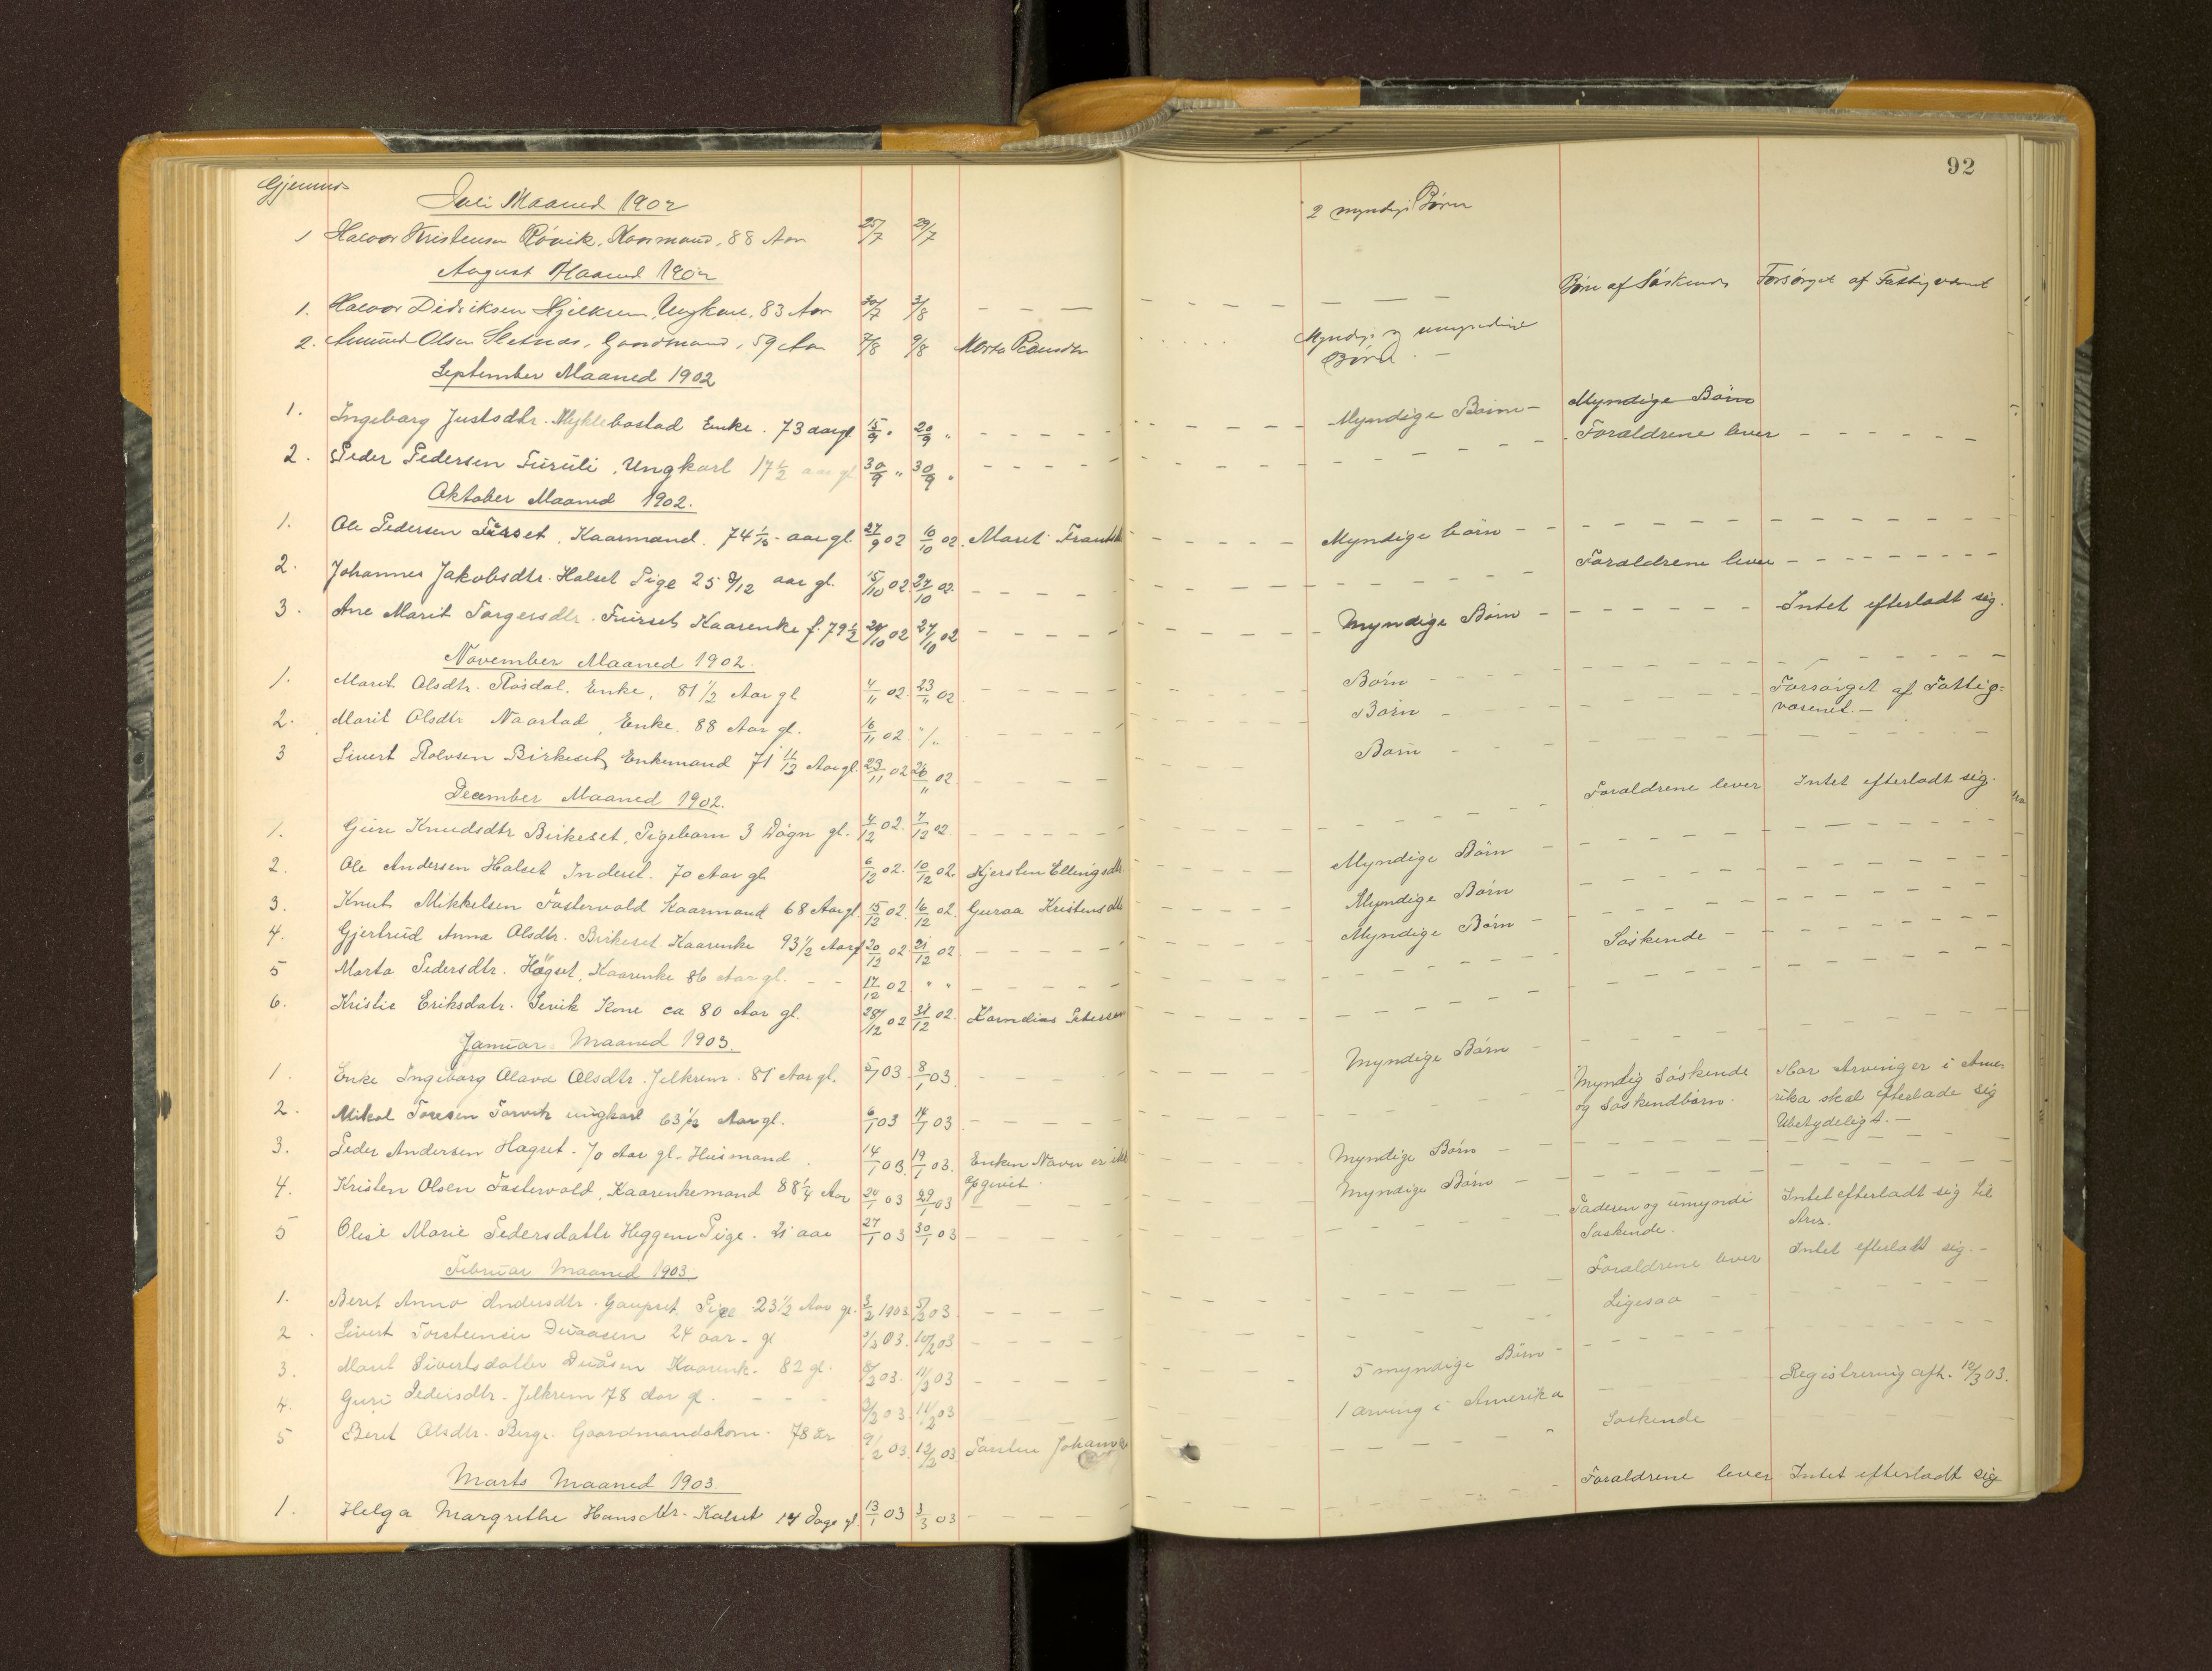 92
Gjemnes
Juli Maaned 1902
1 Halvor Kristensen Rövik, Kaarmand, 88 Aar 25/7 29/7 2 myndige Börn
August Maaned 1902
1. Halvor Didriksen Hjelkrem, Ungkar, 83 Aar 30/7 3/8 — — — Börn af Söskende Forsörget af Fattigvæsenet
2. Amund Olsen Sletnæs, Gaardmand, 59 Aar 7/8 9/8 Myndige og umyndige
Börn. —
September Maaned 1902
1. Ingeborg Justsdtr. Myklebostad Enke. 73 aar gl. 15/9 " 20/9 " Myndige Börn — Myndige Börn
2. Peder Pedersen Furuli, Ungkarl 17 1/2 aar gl 30/9 " 30/9 " Forældrene lever
Oktober Maaned 1902.
1. Ole Pedersen Fürset, Kaarmand. 74 1/12 aar gl 27/9 02 10/10 02. Marit Myndige börn —
2. Johanne Jakobsdtr. Halset Pige 25 9/12 aar gl. 15/10 02. 27/10 02. Forældrene lever
3. Ane Marit Torgersdtr. Fürset Kaarenke f. 79 1/2 20/10 02 27/10 02 Myndige Börn — Intet efterladt sig.
November Maaned 1902.
1. Marit Olsdtr. Rösdal. Enke, 81 1/2 Aar gl 4/11 02. 23/11 02 Börn
2. Marit Olsdtr Naastad, Enke. 88 Aar gl. 16/11 02. "/" Börn Forsörget af Fattig=
væsenet. —
3 Sivert Rolvsen Birkeset, Enkemand 71 11/12 Aar gl. 23/11 02 26/11 02 Barn
December Maaned 1902.
1. Guri Knudsdtr Birkeset, Pigebarn 3 Dögn gl. 4/12 02. 7/12 02. Forældrene lever Intet efterladt sig.
2. Ole Andersen Halset Inderst. 70 Aar gl 6/12 02. 10/12 02. Kjersten Ellingsdtr Myndige Börn
3. Knut Mikkelsen Fostervold Kaarmand 68 Aar gl. 15/12 02. 16/12 02. Guraa Kristensdtr Myndige Börn
4. Gjertrud Anna Olsdtr. Birkeset Kaarenke 93 1/2 Aar gl 20/12 02 21/12 02 Myndige Börn
5 Marta Pedersdtr. Högset, Kaarenke 86 Aar gl. 17/12 02 " " Söskende
6. Kristie Eriksdatr. Sevik Kone ca 80 Aar gl. 28/12 02 31/12 02. Kornelius Petersen
Januar Maaned 1903.
1. Enke Ingeborg Olava Olsdtr. Jelkrem. 81 Aar gl. 5/1 03 8/1 03. Myndige Börn
2. Mikal Toresen Torvik ungkarl 63 1/12 Aar gl. 6/1 03 14/1 03 Myndig Söskende Har Arvinger i Ame-
og Söskendbörn. rika skal efterlade sig
Ubetydeligt. —
3. Peder Andersen Hagset. 70 Aar gl. Husmand. 14/1 03. 19/1 03. Enken Navn er ikke Myndige Börn
opgivet.
4. Kristen Olsen Fostervold, Kaarenkemand 88 1/4 Aar 24/1 03 29/1 03 Myndige Börn
5 Olise Marie Pedersdatter Heggem Pige. 21 aar 27/1 03 30/1 03 Faderen og umyndi Intet efterladt sig til
Söskende. Arv.
Februar Maaned 1903
1. Beret Anna Andersdtr. Gaupset Pige 23 1/2 Aar gl. 3/2 1903. 5/2 03 Forældrene lever Intet efterladt sig. —
2. Sivert Torsteinsen Duaasen 24 aar gl 5/2 03. 10/2 03 Ligesaa
3. Marit Sivertsdatter Duåsen Kaarenk. 82 gl. 8/2 03. 11/2 03 5 myndige Börn —
4. Guri Pedersdtr. Jelkrem 78 aar gl. 3/2 03. 11/2 03 1 arving i Amerika Registrering afh. 12/3 03.
5 Beret Olsdtr. Berge. Gaardmandskone. 78 år 9/2 03. 12/2 03 Söskende
Marts Maaned 1903.
1. Helga Margrethe Hansdtr. Kalset 14 Dage gl. 13/1 03 3/3 03 Forældrene lever Intet efterladt sig